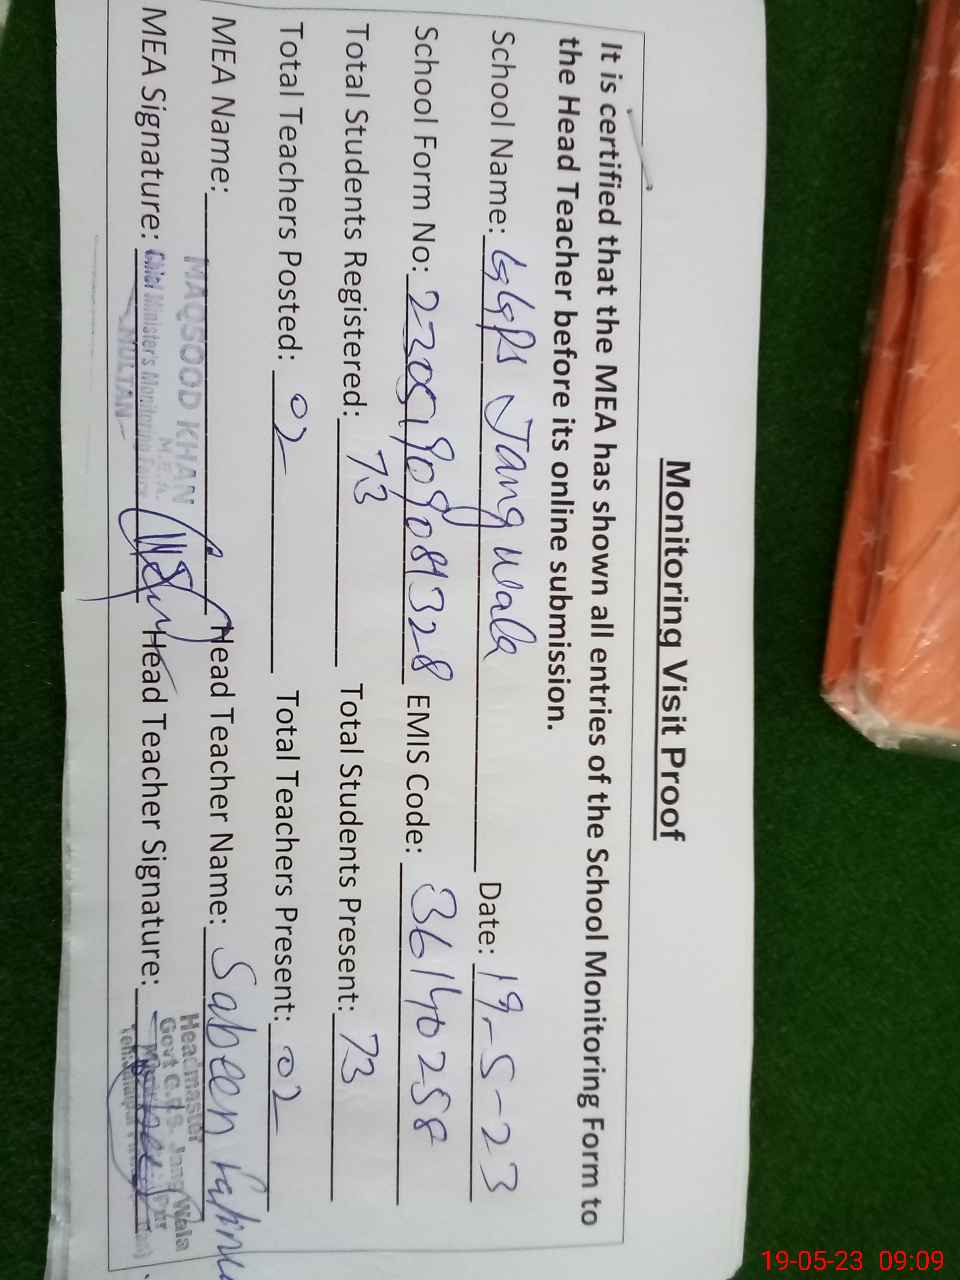 Monitoring Visit Proof
It is certified that the MEA has shown all entries of the School Monitoring Form to
the Head Teacher before its online submission.
School Name: GGPS Jang Wala Date: 19-5-23
School Form No: EMIS Code: 36140258
Total Students Registered: 73 Total Students Present: 73
Total Teachers Posted: 02 Total Teachers Present: 02
MEA Name: MAQSOOD KHAN Head Teacher Name: Sabeen
M.E.A.
MEA Signature: Chief Minister's Monitoring Force Head Teacher Signature:
MULTAN
Headmaster
Govt G.P.S. Jang Wala
19-05-23 09:09